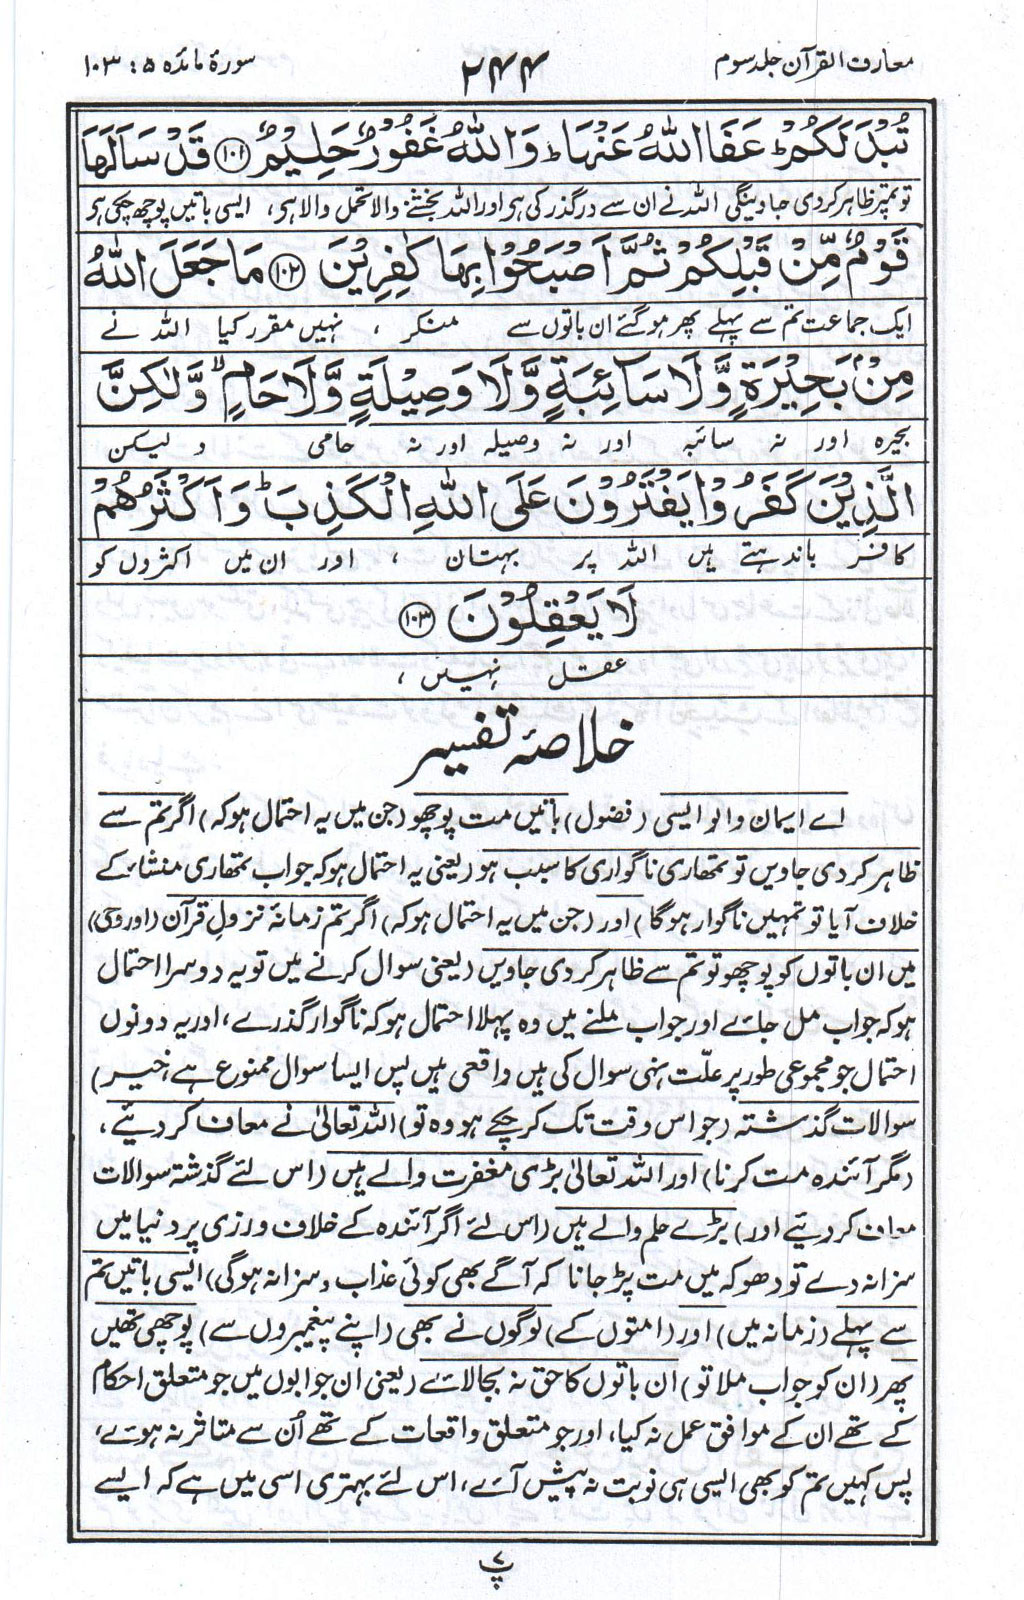 معارف القرآن جلد سوم
۲۴۴
سورۂ مائدہ ۵: ۱۰۳
تُبْدَ لَكُمْ ؕ عَفَا اللّٰهُ عَنْهَا ؕ وَاللّٰهُ غَفُوْرٌ حَلِيْمٌ ۝۱۰۱ قَدْ سَاَلَهَا
تو تمپر ظاہر کردی جاوینگی اللہ نے ان سے درگذر کی ہو اور اللہ بخشنے والا تحمل والا ہو، ایسی باتیں پوچھ چکی ہو
قَوْمٌ مِّنْ قَبْلِكُمْ ثُمَّ اَصْبَحُوْا بِهَا كٰفِرِيْنَ ۝۱۰۲ مَا جَعَلَ اللّٰهُ
ایک جماعت تم سے پہلے پھر ہوگئے ان باتوں سے منکر ، نہیں مقرر کیا اللہ نے
مِنْۢ بَحِيْرَةٍ وَّلَا سَآئِبَةٍ وَّلَا وَصِيْلَةٍ وَّلَا حَامٍ ۙ وَّلٰكِنَّ
بحیرہ اور نہ سائبہ اور نہ وصیلہ اور نہ حامی و لیکن
الَّذِيْنَ كَفَرُوْا يَفْتَرُوْنَ عَلَى اللّٰهِ الْكَذِبَ ؕ وَاَكْثَرُهُمْ
کافر باندھتے ہیں اللہ پر بہتان ، اور ان میں اکثروں کو
لَا يَعْقِلُوْنَ ۝۱۰۳
عقل نہیں ،
خلاصۂ تفسیر
اے ایمان والو ایسی (فضول) باتیں مت پوچھو (جن میں یہ احتمال ہو کہ) اگر تم سے
ظاہر کردی جاویں تو تمھاری ناگواری کا سبب ہو (یعنی یہ احتمال ہو کہ جواب تمھاری منشاء کے
خلاف آیا تو تمہیں ناگوار ہوگا) اور (جن میں یہ احتمال ہو کہ) اگر تم زمانۂ نزولِ قرآن (اور وحی)
میں ان باتوں کو پوچھو تو تم سے ظاہر کردی جاویں (یعنی سوال کرنے میں تو یہ دوسرا احتمال
ہو کہ جواب مل جائے اور جواب ملنے میں وہ پہلا احتمال ہو کہ ناگوار گذرے، اور یہ دونوں
احتمال جو مجموعی طور پر علّت نہی سوال کی ہیں واقعی ہیں پس ایسا سوال ممنوع ہے، خیر)
سوالات گذشتہ (جو اس وقت تک کرچکے ہو وہ تو) اللہ تعالیٰ نے معاف کردیئے،
(مگر آئندہ مت کرنا) اور اللہ تعالیٰ بڑی مغفرت والے ہیں (اس لئے گذشتہ سوالات
معاف کردیئے اور) بڑے حلم والے ہیں (اس لئے اگر آئندہ کے خلاف ورزی پر دنیا میں
سزا نہ دے تو دھوکہ میں مت پڑجانا کہ آگے بھی کوئی عذاب و سزا نہ ہوگی) ایسی باتیں تم
سے پہلے (زمانہ میں) اور (امتوں کے) لوگوں نے بھی (اپنے پیغمبروں سے) پوچھی تھیں
پھر (ان کو جواب ملا تو) ان باتوں کا حق نہ بجا لائے (یعنی ان جوابوں میں جو متعلق احکام
کے تھے ان کے موافق عمل نہ کیا، اور جو متعلق واقعات کے تھے اُن سے متاثر نہ ہوئے،
پس کہیں تم کو بھی ایسی ہی نوبت نہ پیش آئے، اس لئے بہتری اسی میں ہے کہ ایسے
پ ۷